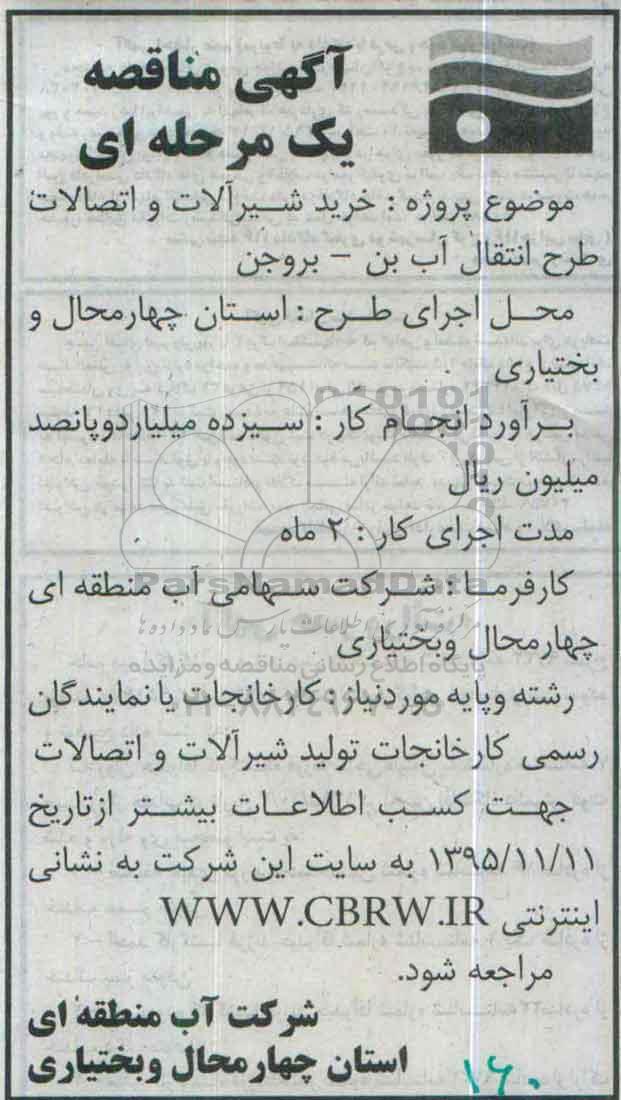 آگهی مناقصه
یک مرحله ای
موضوع پروژه : خرید شیرآلات و اتصالات
طرح انتقال آب بن – بروجن
محل اجرای طرح : استان چهارمحال و
بختیاری
برآورد انجام کار : سیزده میلیاردوپانصد
میلیون ریال
مدت اجرای کار : ۲ ماه
کارفرما : شرکت سهامی آب منطقه ای
چهارمحال وبختیاری
رشته وپایه موردنیاز : کارخانجات یا نمایندگان
رسمی کارخانجات تولید شیرآلات و اتصالات
جهت کسب اطلاعات بیشتر ازتاریخ
۱۳۹۵/۱۱/۱۱ به سایت این شرکت به نشانی
اینترنتی WWW.CBRW.IR
مراجعه شود.
شرکت آب منطقه ای
استان چهارمحال وبختیاری
۱۶۰
ParsNamadData